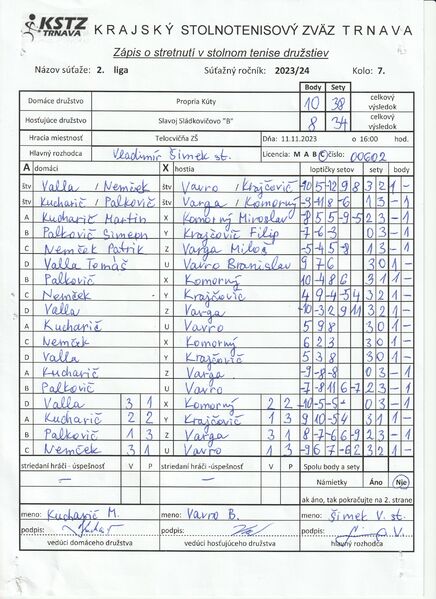 KSTZ TRNAVA KRAJSKÝ STOLNOTENISOVÝ ZVÄZ TRNAVA
Zápis o stretnutí v stolnom tenise družstiev
Názov súťaže: 2. liga Súťažný ročník: 2023/24 Kolo: 7.
Body Sety
Domáce družstvo Propria Kúty 10 38 celkový výsledok
Hosťujúce družstvo Slavoj Sládkovičovo "B" 8 34 celkový výsledok
Hracia miestnosť Telocvičňa ZŠ Dňa: 11.11.2023 o 16:00 hod.
Hlavný rozhodca Vladimír Šimek st. Licencia: M A B C číslo: 00602
A domáci X hostia loptičky setov sety body
štv Valla / Nemček štv Vavro / Krajčovič -10 5 -12 9 8 3 2 1 -
štv Kucharič / Palkovič štv Varga / Komorný -9 -11 8 -6 1 3 - 1
A Kucharič Martin X Komorný Miroslav -8 5 5 -9 -5 2 3 - 1
B Palkovič Simeon Y Krajčovič Filip -7 -6 -3 0 3 - 1
C Nemček Patrik Z Varga Miloš -5 -4 5 -8 1 3 - 1
D Valla Tomaš U Vavro Branislav 9 7 6 3 0 1 -
B Palkovič X Komorný 10 -4 8 6 3 1 1 -
C Nemček Y Krajčovič 4 9 -4 -5 4 3 2 1 -
D Valla Z Varga -10 -3 2 9 11 3 2 1 -
A Kucharič U Vavro 5 9 8 3 0 1 -
C Nemček X Komorný 6 2 3 3 0 1 -
D Valla Y Krajčovič 5 3 8 3 0 1 -
A Kucharič Z Varga -9 -8 -8 0 3 - 1
B Palkovič U Vavro -7 -8 11 6 -7 2 3 - 1
D Valla 3 1 X Komorný 2 2 -10 -5 -5 0 3 - 1
A Kucharič 2 2 Y Krajčovič 1 3 9 10 -5 4 3 1 1 -
B Palkovič 1 3 Z Varga 3 1 8 -7 -6 6 -9 2 3 - 1
C Nemček 3 1 U Vavro 1 3 -9 6 7 -6 2 3 2 1 -
striedaní hráči - úspešnosť V P striedaní hráči - úspešnosť V P Spolu body a sety
— — Námietky Áno Nie
ak áno, tak pokračujte na 2. strane
meno: Kucharič M. meno: Vavro B. meno: Šimek V. st.
podpis: podpis: podpis:
vedúci domáceho družstva vedúci hosťujúceho družstva hlavný rozhodca